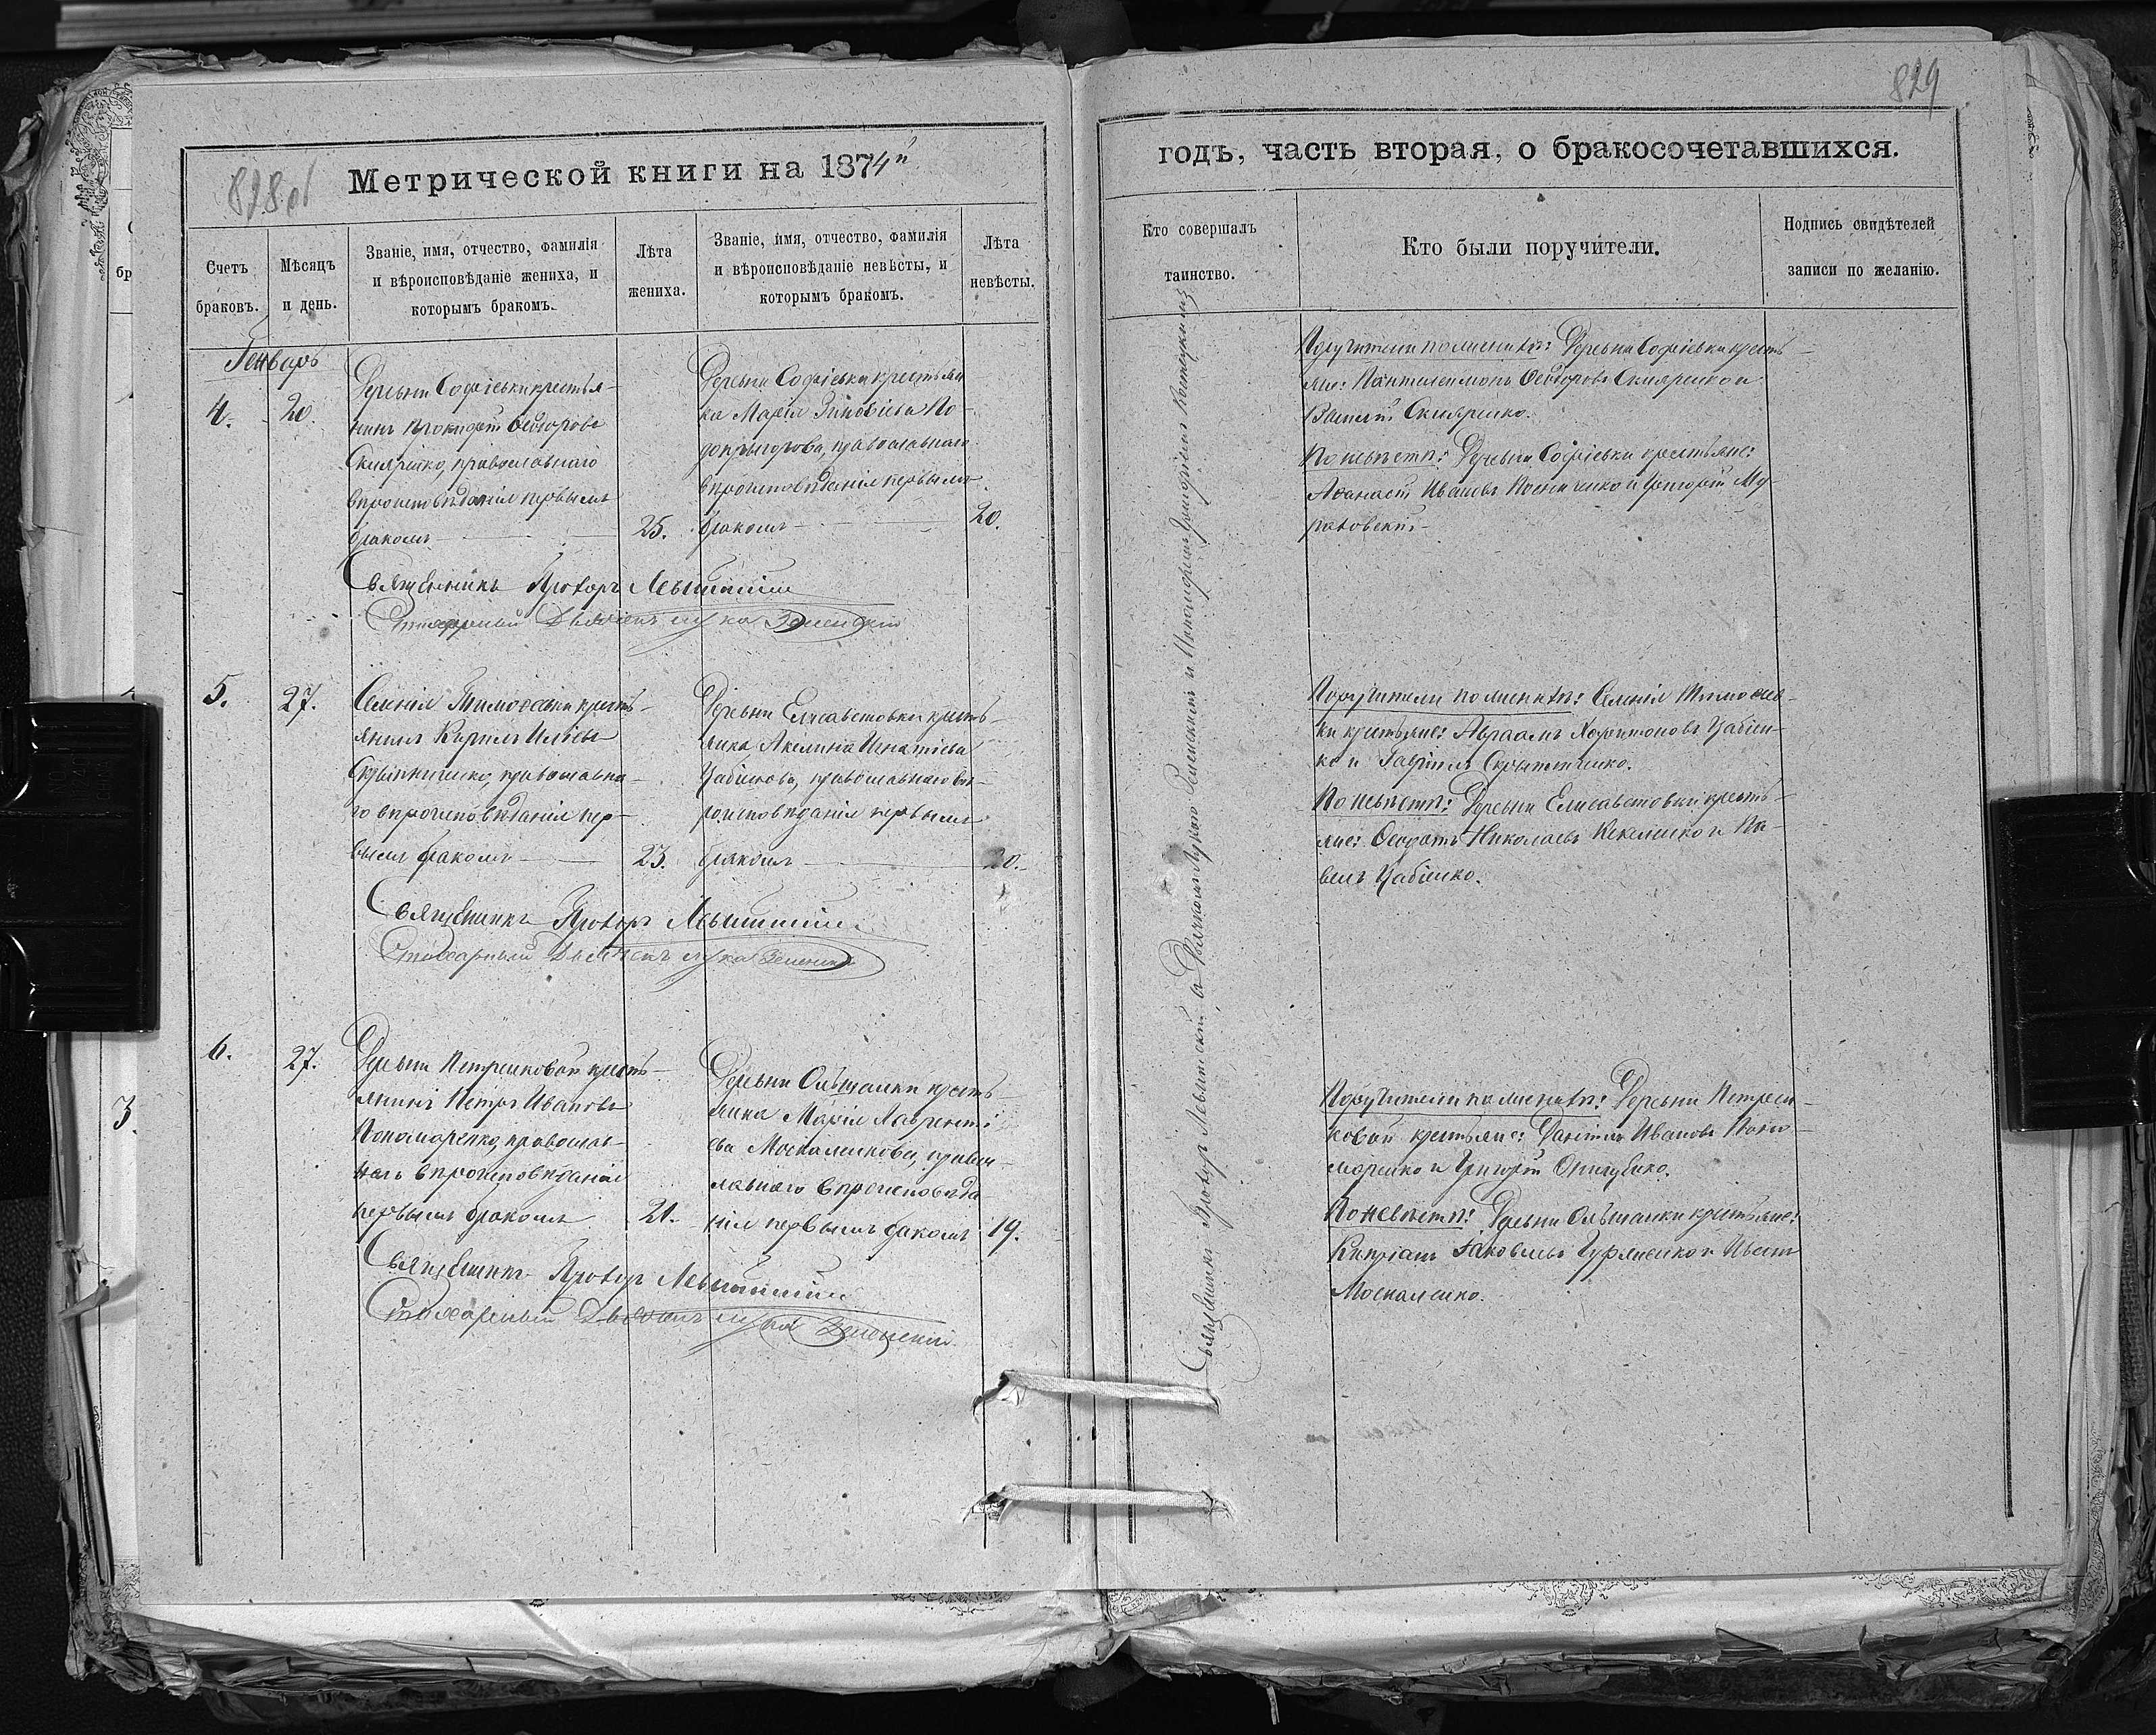 828 об
Метрической книги на 1874й
Счетъ
браковъ.
Мѣсяцъ
и день.
Званіе, имя, отчество, фамилія
и вѣроисповѣданіе жениха, и
которымъ бракомъ.
Лѣта
жениха.
Званіе, имя, отчество, фамилія
и вѣроисповѣданіе невѣсты, и
которымъ бракомъ.
Лѣта
невѣсты.
Генварь
4.
20.
Деревни Софіевки крестья-
нинъ Прокофій Ѳеодоровъ
Скляренко, православнаго
вѣроисповѣданія первымъ
бракомъ
25.
Деревни Софіевки крестьян
ка Марія Зиновіева По-
допрыгорова, православнаго
вѣроисповѣданія первымъ
бракомъ
20.
Священникъ Прохоръ Левытскій
Стихарный Дьячокъ Лука Зеленскій
5.
27.
Селенія Тимоѳеевки кресть-
янинъ Кирилъ Иліевъ
православна-
го вѣроисповѣданія пер-
вымъ бракомъ
23.
Деревни Елисаветовки кресть-
янка Акилина Игнатіева
Цабенкова, православнаго вѣ-
роисповѣданія первымъ
бракомъ
20.
Священникъ Прохоръ Левытскій
Стихарный Дьячокъ Лука Зеленскій
6.
27.
Деревни Петренковой кресть-
янинъ Петръ Ивановъ
Пономаренко, православ-
наго вѣроисповѣданія
первымъ бракомъ
21.
Деревни Ольшанки кресть-
янка Марія Лавренті
ева Москаленкова, право-
лавнаго вѣроисповѣда
нія первымъ бракомъ
19.
Священникъ Прохоръ Левытскій
Стихарный Дьячокъ Лука Зеленскій
3.
829
годъ, часть вторая, о бракосочетавшихся.
Кто совершалъ
таинство.
Кто были поручители.
Подпись свидѣтелей
записи по желанію.
Священникъ Прохоръ Левытскій съ Дьячкомъ Лукою Зеленскимъ и Пономаремъ Григоріемъ
Поручители по женихѣ: Деревни Софіевки кресть-
яне: Пантелеимонъ Ѳеодоровъ Скляренко и
Василій Скляренко.
По невѣстѣ: Деревни Софіевки крестьяне:
Аѳанасій Ивановъ и Григорій Му-
раховскій.
Поручители по женихѣ: Селенія Тимоѳеев-
ки крестьяне: Авраамъ Харитоновъ Цабен-
ко и Гавріилъ
По невѣстѣ: Деревни Елисаветовки кресть-
яне: Ѳеодотъ Николаевъ и Па-
велъ Цабенко.
Поручители по женихѣ: Деревни Петрен-
ковой крестьяне: Даніилъ Ивановъ Поно-
маренко и Григорій
По невѣстѣ: Деревни Ольшанки крестьяне:
Кипріанъ Іаковлевъ и Иванъ
Москаленко.